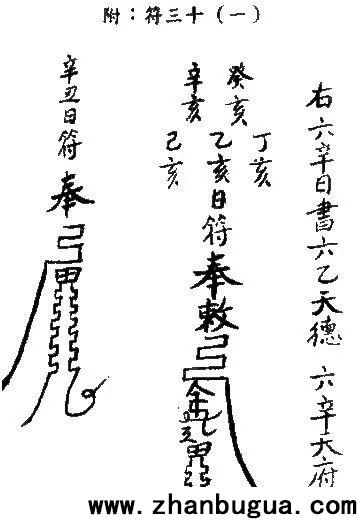 附：符三十（一）
右六辛日書六乙天德 六辛天府
丁亥
癸亥
乙亥日符
辛亥
己亥
奉敕
辛丑日符
奉
www.zhanbugua.com